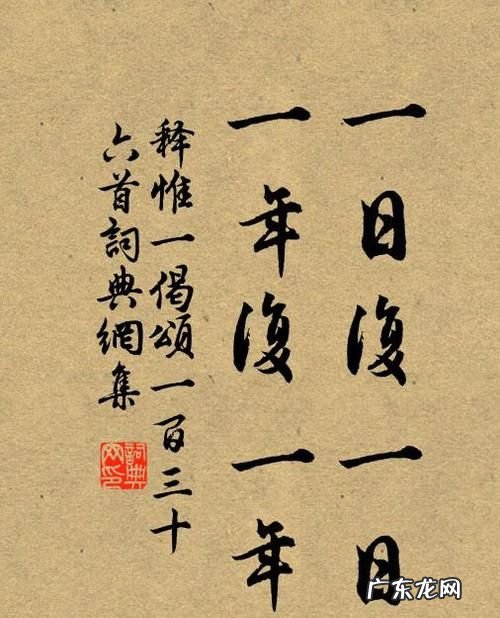 一日復一日
一年復一年
释惟一偈頌一百三十
六首詞典網集
詞典
网印
广东龙网